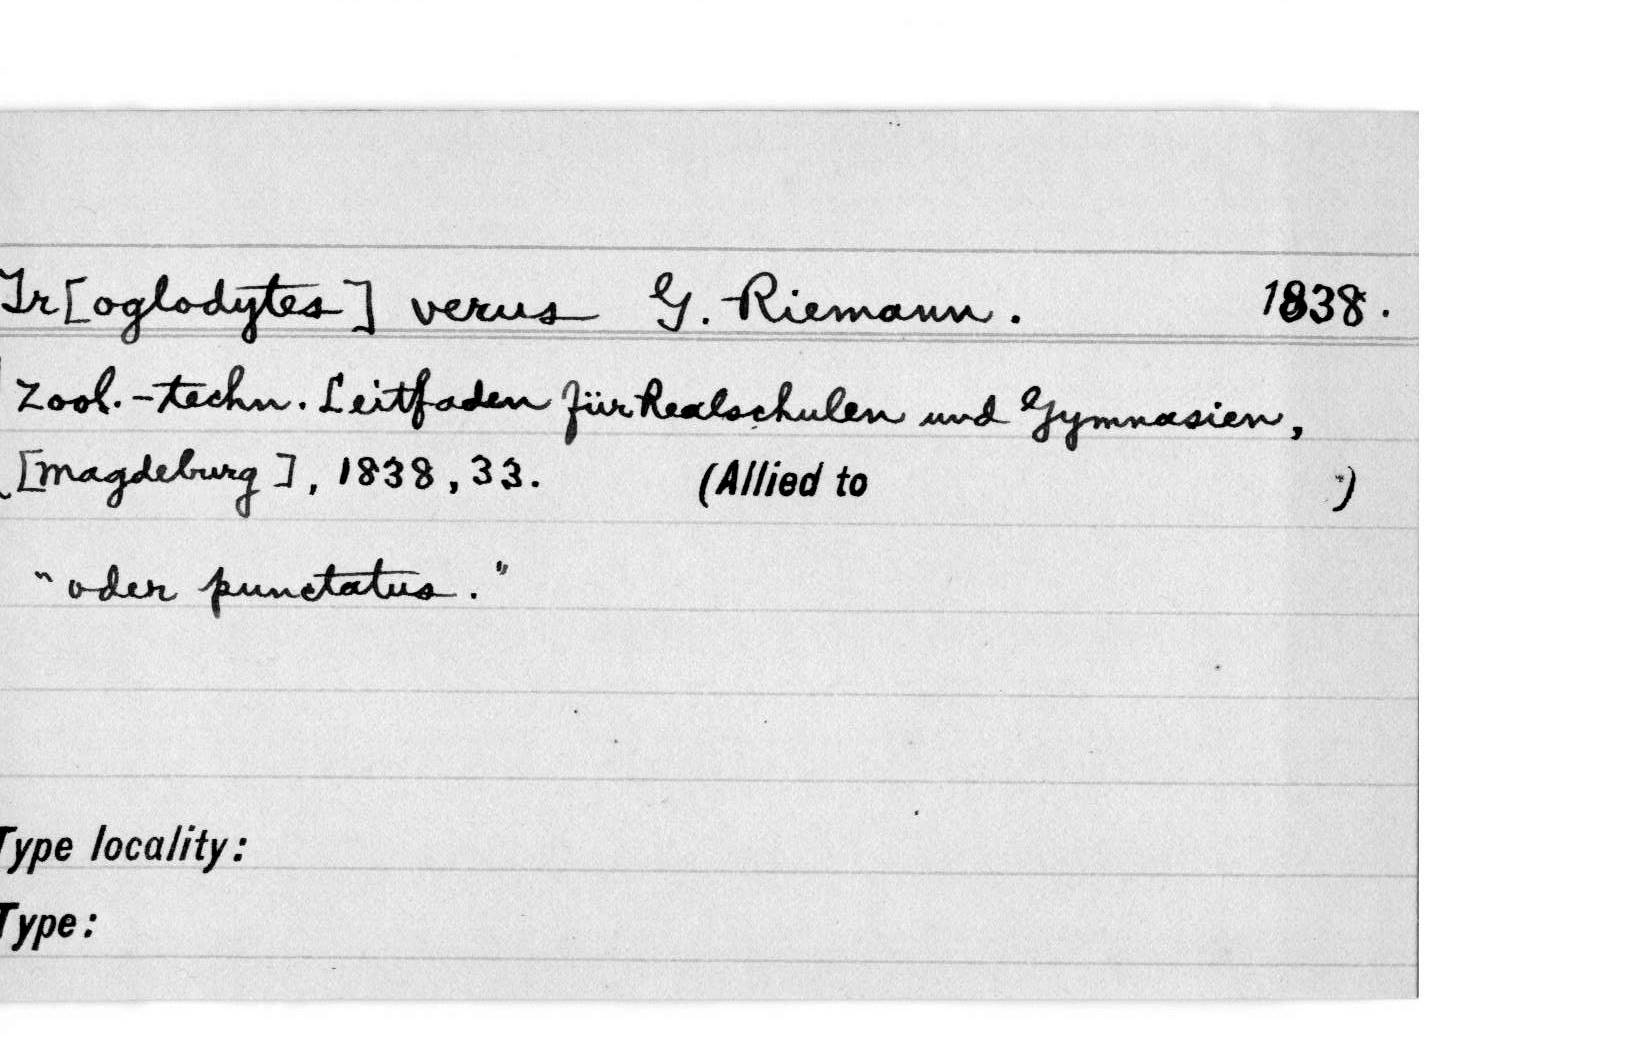 Tr[oglodytes] verus G. Riemann. 1838.
Zool.-techn. Leitfaden für Realschulen und Gymnasien,
[Magdeburg], 1838, 33. (Allied to )
"oder punctatus."
Type locality:
Type: